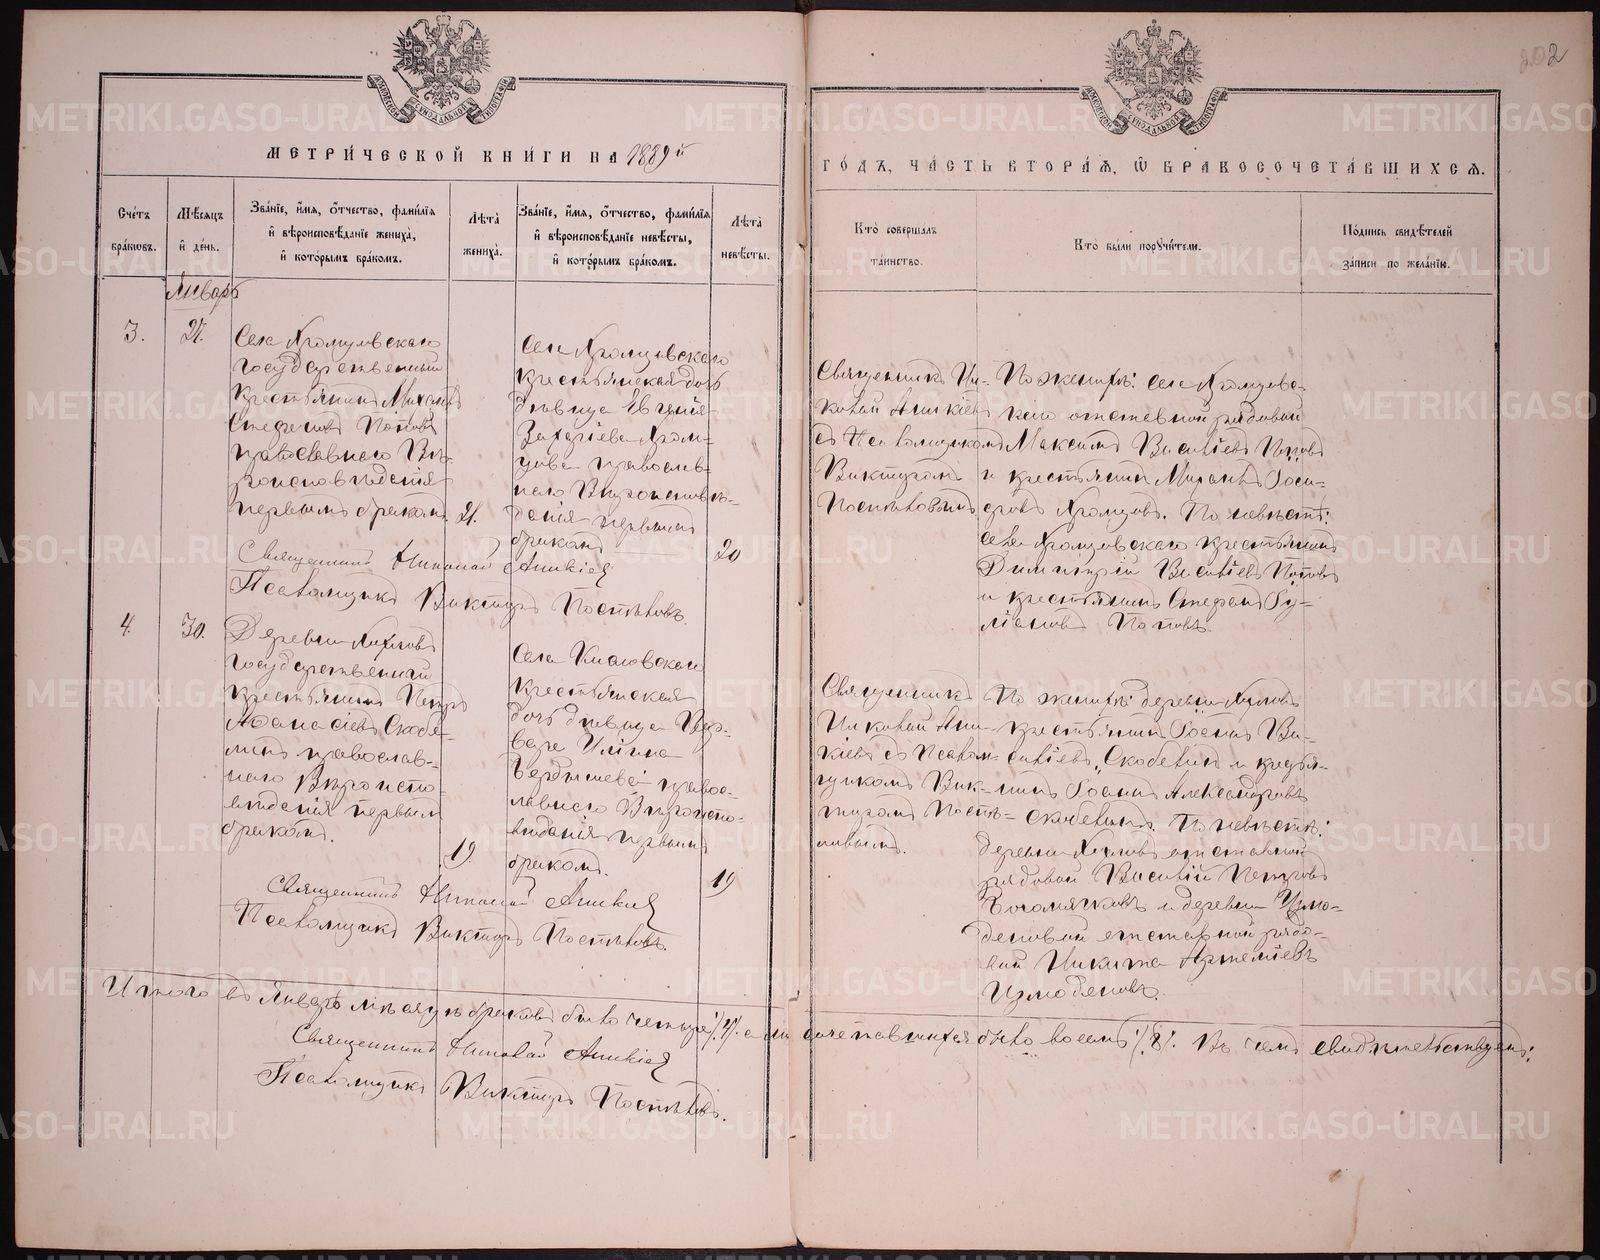 202
МЕТРИ́ЧЕСКОЙ КНИ́ГИ НА 1889й
ГО́ДЪ, ЧА́СТЬ ВТОРА́Ѧ, Ѿ БРАКОСОЧЕТА́ВШИХСѦ.
Сче́тъ бра́кωвъ.
Мѣ́сѧцъ и҆ де́нь.
Зва́нїе, и҆́мѧ, ѻ҆́тчество, фами́лїѧ
и҆ вѣроисповѣ́данїе жениха̀,
и҆ кото́рымъ бра́комъ.
Лѣта̀ жениха̀.
Зва́нїе, и҆́мѧ, ѻ҆́тчество, фами́лїѧ
и҆ вѣроисповѣ́данїе невѣ́сты,
и҆ кото́рымъ бра́комъ.
Лѣта̀ невѣ́сты.
Кто̀ соверша́лъ
та́инство.
Кто̀ бы́ли поручи́тели.
По́дпись свидѣ́телей
за́писи по жела́нїю.
Январь
3.
27.
Села Хромцовскаго
государственный
крестьянинъ Михаилъ
Стефановъ Поповъ
православнаго Вѣ-
роисповѣданія
первымъ бракомъ.
21.
Села Хромцовскаго
крестьянская дочь
дѣвица Евгенія
Захаріева Хром-
цова православ-
наго Вѣроисповѣ-
данія первымъ
бракомъ
20
Священникъ Ни-
колай Аникіевъ
съ Псаломщикомъ
Викторомъ
Постниковымъ
По женихѣ: села Хромцовс-
каго отставной рядовой
Максимъ Васильевъ Поповъ
и крестьянинъ Михаилъ
Хромцовъ. По невѣстѣ:
села Хромцовскаго крестьянинъ
Димитрій Васильевъ Поповъ
и крестьянинъ Стефанъ Іу-
ліановъ Поповъ.
Священникъ Николай Аникіевъ
Псаломщикъ Викторъ Постниковъ.
4.
30.
Деревни
государственный
крестьянинъ Петръ
Аѳанасіевъ Скобе-
линъ православ-
наго Вѣроиспо-
вѣданія первымъ
бракомъ.
19
Села Кисловскаго
крестьянская
дочь дѣвица Вар-
вара
Бердышева право-
славнаго Вѣроиспо-
вѣданія первымъ
бракомъ.
19
Священникъ
Николай Ани-
кіевъ съ Псалом-
щикомъ Вик-
торомъ Постни-
ковымъ.
По женихѣ: деревни
крестьянинъ Іоаннъ Ва-
силіевъ Скобелинъ и крестья-
нинъ Іоаннъ Александровъ
Скобелинъ. По невѣстѣ:
деревни отставной
рядовой Василій Петровъ
Богомяковъ и деревни Измо-
деновой отставной рядо-
вой Никита Артеміевъ
Измоденовъ.
Священникъ Николай Аникіевъ
Псаломщикъ Викторъ Постниковъ.
Итого въ Январѣ мѣсяцѣ браковъ было четыре /4/. а сочетавшихся было восемь /8/. Въ чемъ свидѣтельствуемъ:
Священникъ Николай Аникіевъ
Псаломщикъ Викторъ Постниковъ.
METRIKI.GASO-URAL.RU